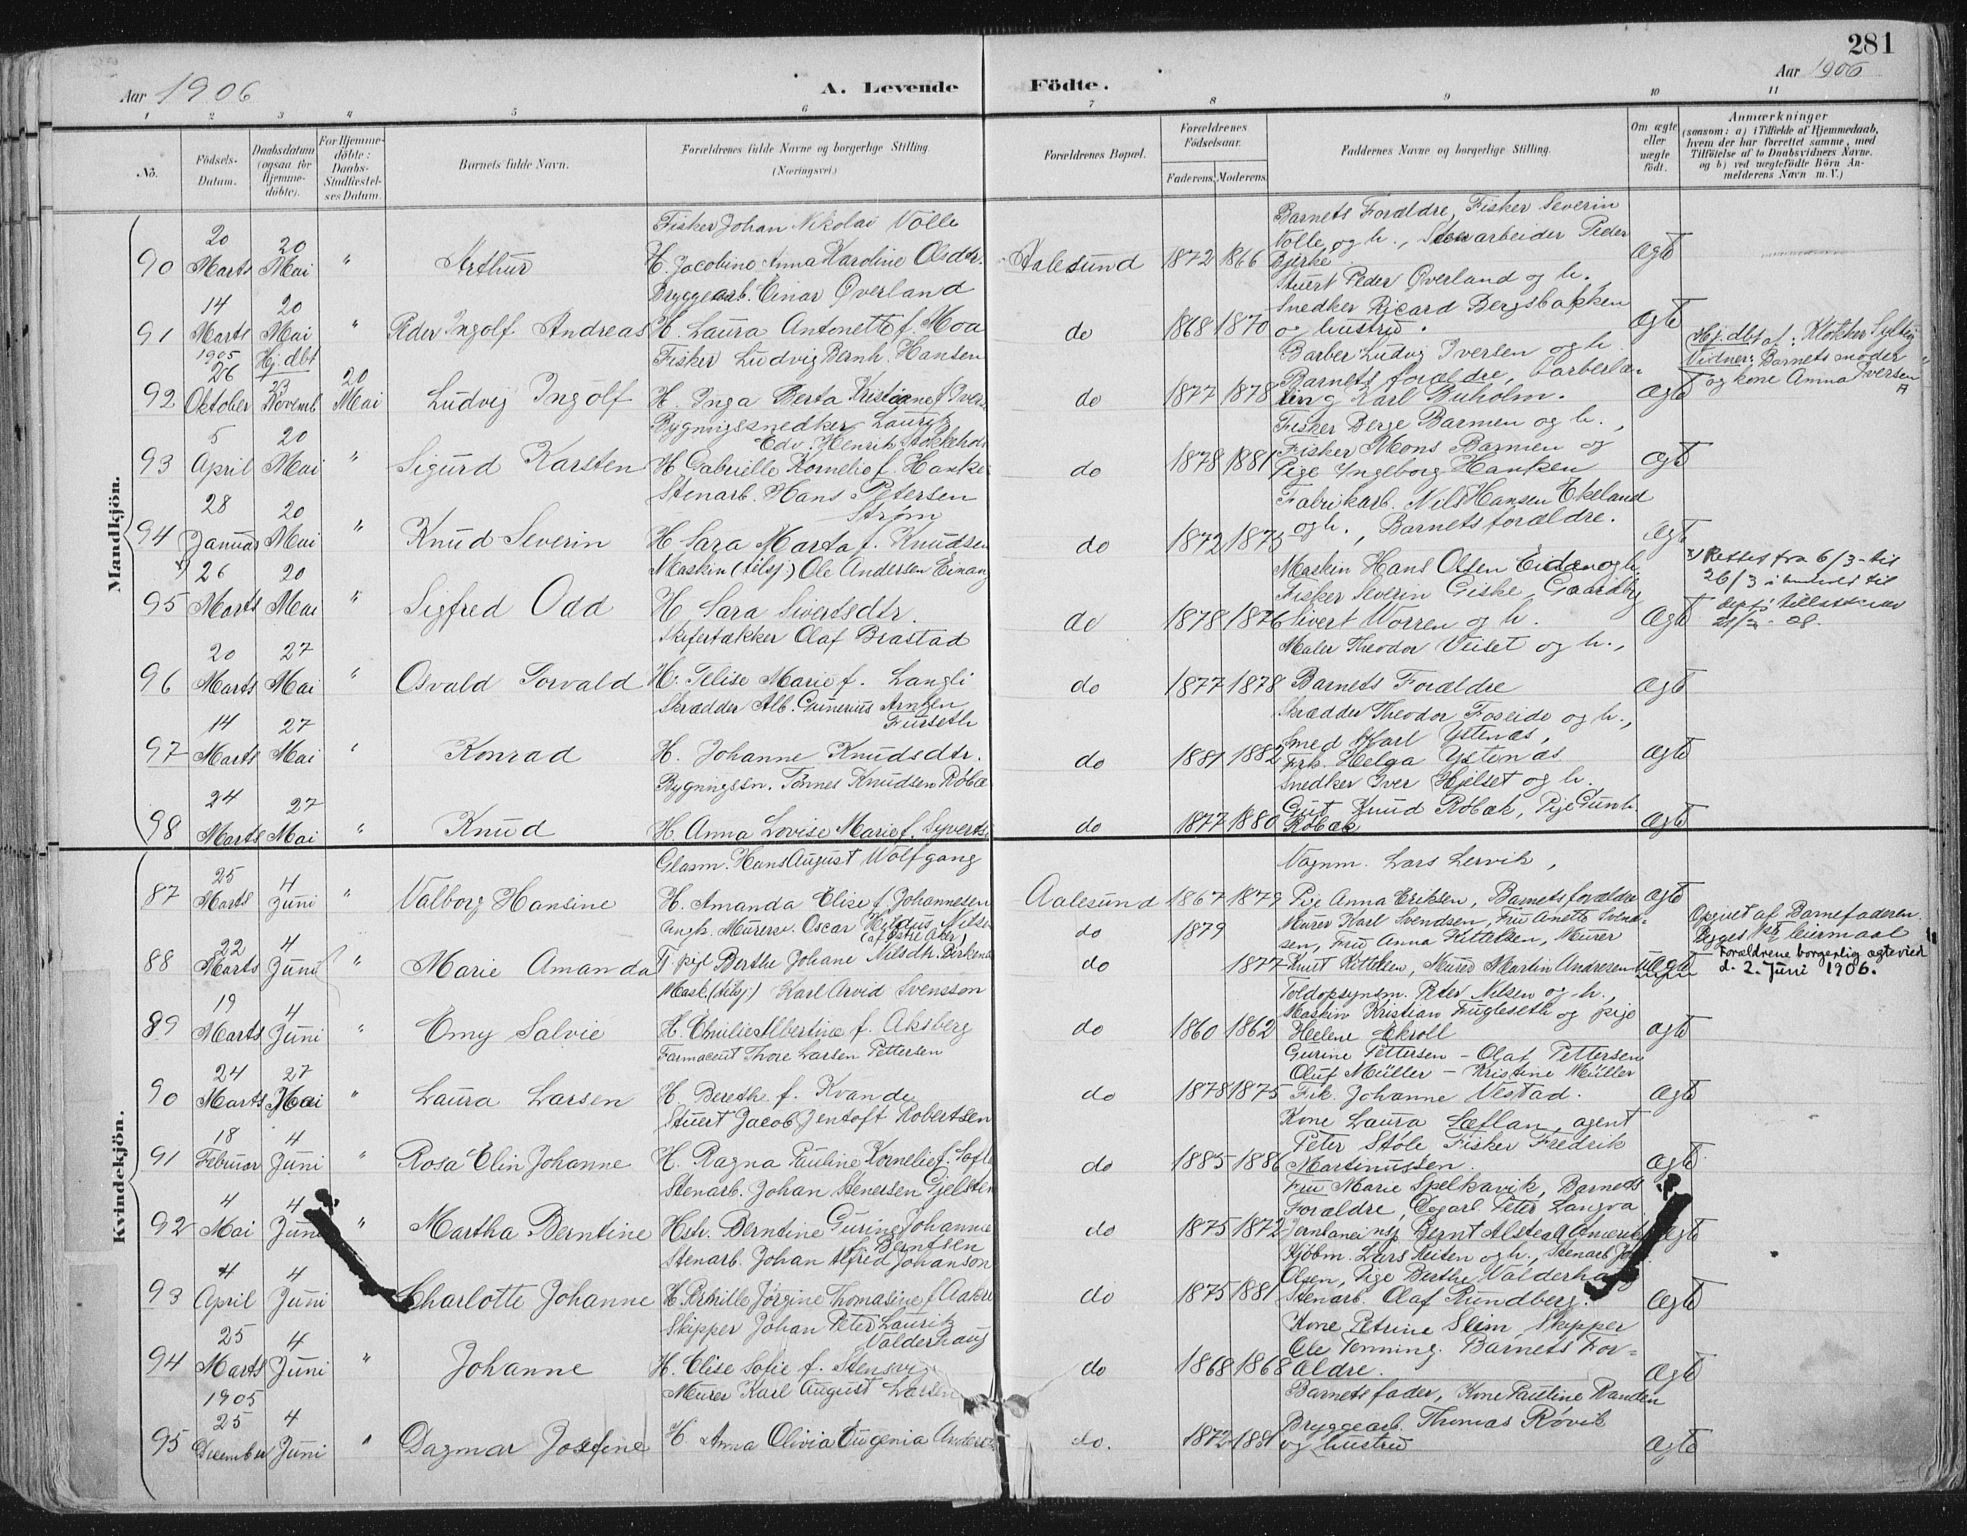 281
Aar 1906
A. Levende Födte.
Aar 1906
1 2 3 4 5 6 7 8 9 10 11
No.
Födsels-Datum.
Daabsdatum (ogsaa for Hjemme-döbte).
For Hjemme-döbte: Daabs-Stadfæstel-ses Datum.
Barnets fulde Navn.
Forældrenes fulde Navne og borgerlige Stilling.
(Næringsvei.)
Forældrenes Bopæl.
Forældrenes Födselsaar.
Faderens. Moderens.
Faddernes Navne og borgerlige Stilling.
Om ægte eller uægte födt.
Anmærkninger
(saasom: a) i Tilfælde af Hjemmedaab,
hvem der har forrettet samme, med
Tilföielse af to Daabsvidners Navne.
og b) ved uægtefödte Börn An-
melderens Navn m. V.)
Mandkjön.
Fisker Johan Nikolai Volle
Barnets Forældre, Fisker Severin
90 20 Marts 20 Mai " Arthur H. Jacobine Anna Karoline Olsdtr. Aalesund 1872 1866 Volle og h., Stenarbeider Peder Bjerke ægte
Bryggearb. Einar Øverland
Stuert Peder Øverland og h.,
91 14 Marts 20 Mai " Peder Ingolf Andreas H. Laura Antonette f. Moa do 1868 1870 Snedker Ricard Bergsbakken og hustru. ægte
Fisker Ludvig Bernh. Hansen
Barber Ludvig Iversen og h.
92 1905 26 Oktober Hj. dbt 23 Novemb 20 Mai Ludvig Ingolf H. Inga Berta Kristiane f. Ivers do 1877 1878 Barnets forældre, barberlæ-
ling Karl Buholm. ægte
Hj. dbt af: Klokker Sylte
Vidner: Barnets moder
og kone Anna Iversen
Bygningssnedker Lauritz
Edv. Henrik Stokkeholm
Fisker Berge Barmen og h.,
93 5 April 20 Mai " Sigurd Karsten H Gabrielle Kornelie f. Hanke do 1878 1881 Fisker Mons Barmen og
Pige Ingeborg Hanken ægte
Stenarb. Hans Petersen
Strøm
Fabrikarb. Nils Hansen Ekeland
94 28 Januar 20 Mai " Knud Severin H Sara Marta f. Knudsen do 1872 1873 og h., Barnets forældre. ægte
Maskin (bitsj) Ole Andersen Einang
Maskin Hans Olsen Eidem og h,
95 26 Marts 20 Mai " Sigfred Odd H Sara Sivertsdtr. do 1878 1876 Fisker Severin Giske, Gaardbr
Sivert Worren og h. ægte
Rettet fra 6/3 til
26/3 i henhold til
Skifertækker Olaf Brastad
Maler Theodor Veiset og h.,
96 20 Marts 27 Mai " Osvald Torvald H. Telise Marie f. Langli do 1877 1878 Barnets Forældre ægte
Skrædder Alb. Gunerius Arntzen
Furseth
Skrædder Theodor Foseide og h.,
97 14 Marts 27 Mai " Konrad H. Johanne Knudsdtr. do 1881 1882 Smed Karl Ystenæs,
Frk. Helga Ystenæs ægte
Bygningsn. Tønnes Knudsen Røbæ
Snedker Iver Hjelset og h.
98 24 Marts 27 Mai " Knud H Anna Lovise Marie f. Syverts do 1877 1880 Gut Knud Røbæk, Pige Gunh.
Røbæk ægte
Kvindekjön.
Glasm. Hans August Wolfgang
Vognm. Lars Lervik,
87 25 Marts 4 Juni " Valborg Hansine H. Amanda Elise f. Johannesen Aalesund 1867 1879 Pige Anna Eriksen, Barnets forældre ægte
Ungk. Murersv. Oscar Hildus Nilsen
(af Østre Aker)
do 1879
Murer Karl Svendsen, Fru Anette Svend-
sen, Fru Anna Kittelsen, Murer
88 22 Marts 4 Juni " Marie Amanda Pige Berthe Johane Nilsdtr. Birkenes do 1877 Knut Kittelsen, Murer Martin Andresen uægte
Opgivet af Barnefaderen.
Begges 1ste leiermaal
Forældrene borgerlig ægteviet
d. 2. Juni 1906.
Mask. (bitsj) Karl Arvid Svensson
Toldopsynsm. Peter Nilsen og h.,
89 19 Marts 4 Juni " Emy Salvie H. Emilie Albertine f. Aksberg do 1860 1862 Maskin Kristian Fugleseth og pige
Helene Ekroll ægte
Farmaceut Thore Larsen Pettersen
Gurine Pettersen - Olaf Pettersen
90 24 Marts 27 Mai " Laura Larsen H. Berethe f. Kvande do 1878 1875 Oluf Müller - Kristine Müller
Frk. Johanne Vestad. ægte
Stuert Jacob Jentoft Robertsen
Kone Laura Sætlan, agent
91 18 Februar 4 Juni " Rosa Elin Johanne H. Ragna Pauline Kornelie f. Soft do 1885 1886 Peter Støle Fisker Fredrik
Martinussen. ægte
Stenarb. Johan Stenersen Gjelsten
Fru Marie Spelkavik, Barnets
92 4 Mai 4 Juni " Martha Berntine Hstr. Berntine Gurine Johanne
Berntsen do 1875 1872 Forældre, Peter Langva
Bernt Alstea ægte
Stenarb. Johan Alfred Johanson
Kjøbm. Lars Reiten og h., Stenarb. Joh.
93 4 April 4 Juni Charlotte Johanne H. Pernille Jørgine Thomasine f. Aakre do 1875 1881 Olsen, Pige Berthe Valderhaug
Stenarb. Olaf Rundberg. ægte
Skipper Johan Peter Laurits
Valderhaug
Kone Petrine Slem, Skipper
94 25 Marts 4 Juni " Johanne H. Elise Sofie f. Stensø do 1868 1868 Ole Tenning. Barnets For-
ældre. ægte
Murer Karl August Larsen
Barnets fader, Kone Pauline Randen
95 1905 25 December 4 Juni " Dagmar Josefine H Anna Olivia Eugenia Anders do. 1872 1881 Bryggearb. Thomas Røvik
og hustru ægte